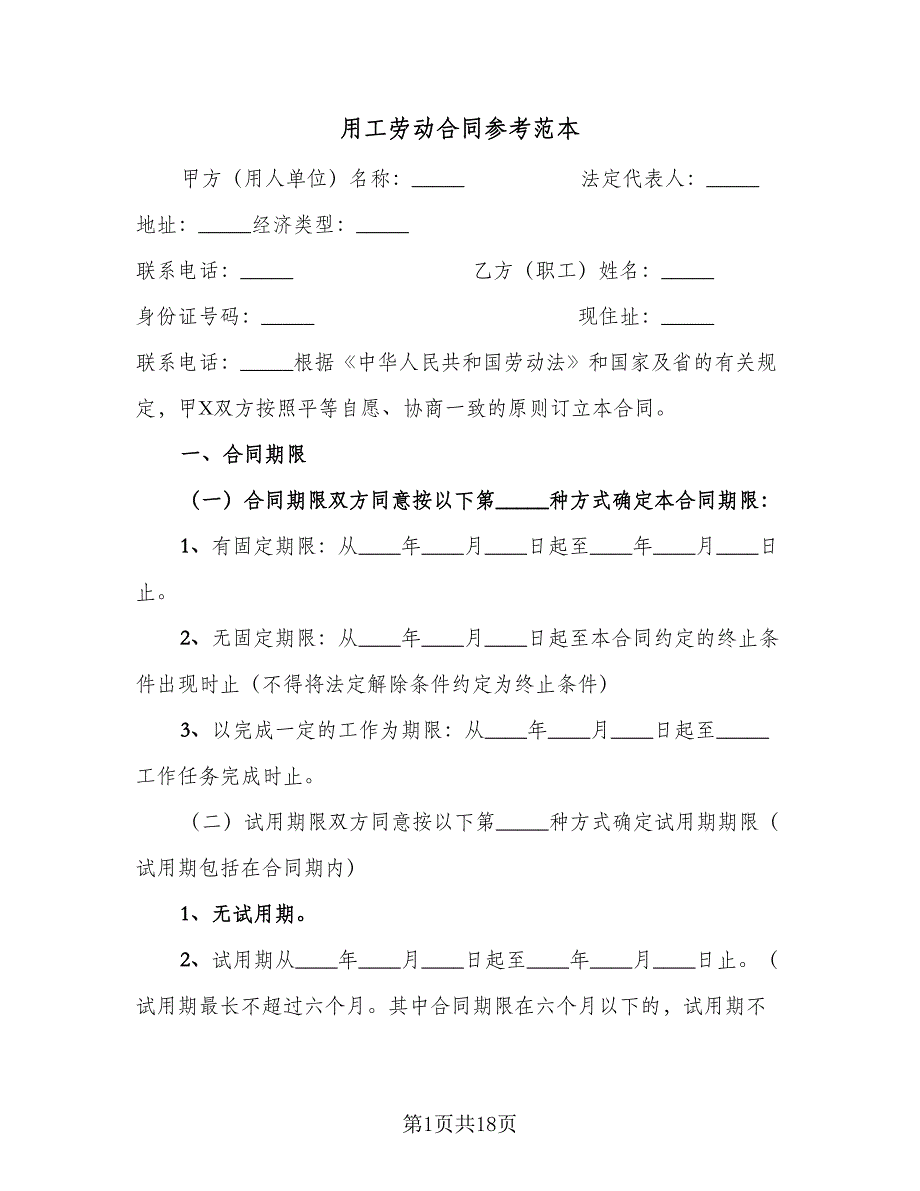 用工劳动合同参考范本
甲方（用人单位）名称：_____ 法定代表人：_____
地址：_____经济类型：_____
联系电话：_____ 乙方（职工）姓名：_____
身份证号码：_____ 现住址：_____
联系电话：_____根据《中华人民共和国劳动法》和国家及省的有关规
定，甲X双方按照平等自愿、协商一致的原则订立本合同。
一、合同期限
（一）合同期限双方同意按以下第_____种方式确定本合同期限：
1、有固定期限：从____年____月____日起至____年____月____日
止。
2、无固定期限：从____年____月____日起至本合同约定的终止条
件出现时止（不得将法定解除条件约定为终止条件）
3、以完成一定的工作为期限：从____年____月____日起至_____
工作任务完成时止。
（二）试用期限双方同意按以下第_____种方式确定试用期期限（
试用期包括在合同期内）
1、无试用期。
2、试用期从____年____月____日起至____年____月____日止。（
试用期最长不超过六个月。其中合同期限在六个月以下的，试用期不
第1页共18页